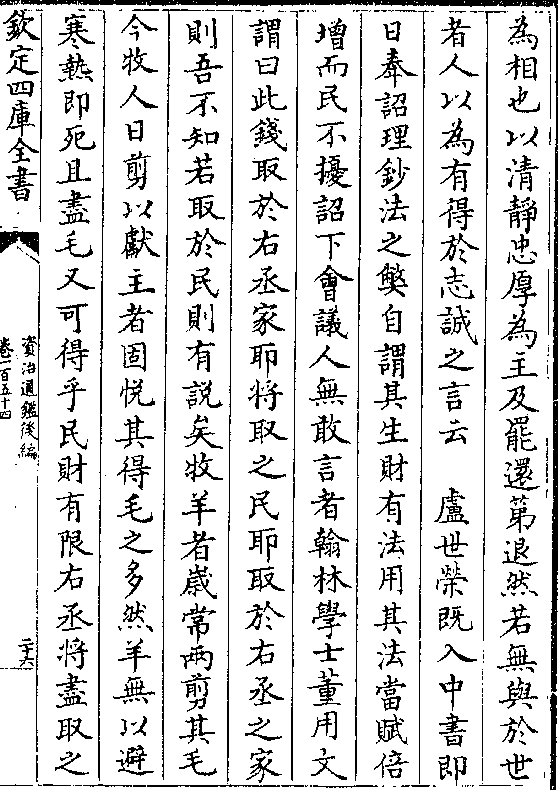 為相也以清靜忠厚為主及罷還第退然若無與於世
者人以為有得於志誠之言云　盧世榮既入中書即
日奉詔理鈔法之弊自謂其生財有法用其法當賦倍
增而民不擾詔下會議人無敢言者翰林學士董用文
謂曰此錢取於右丞家耶將取之民耶取於右丞之家
則吾不知若取於民則有説矣牧羊者嵗常兩剪其毛
今牧人日剪以獻主者固悦其得毛之多然羊無以避
寒熱即死且盡毛又可得乎民財有限右丞將盡取之
欽定四庫全書
資治通鑑後編
卷一百五十四
二十六